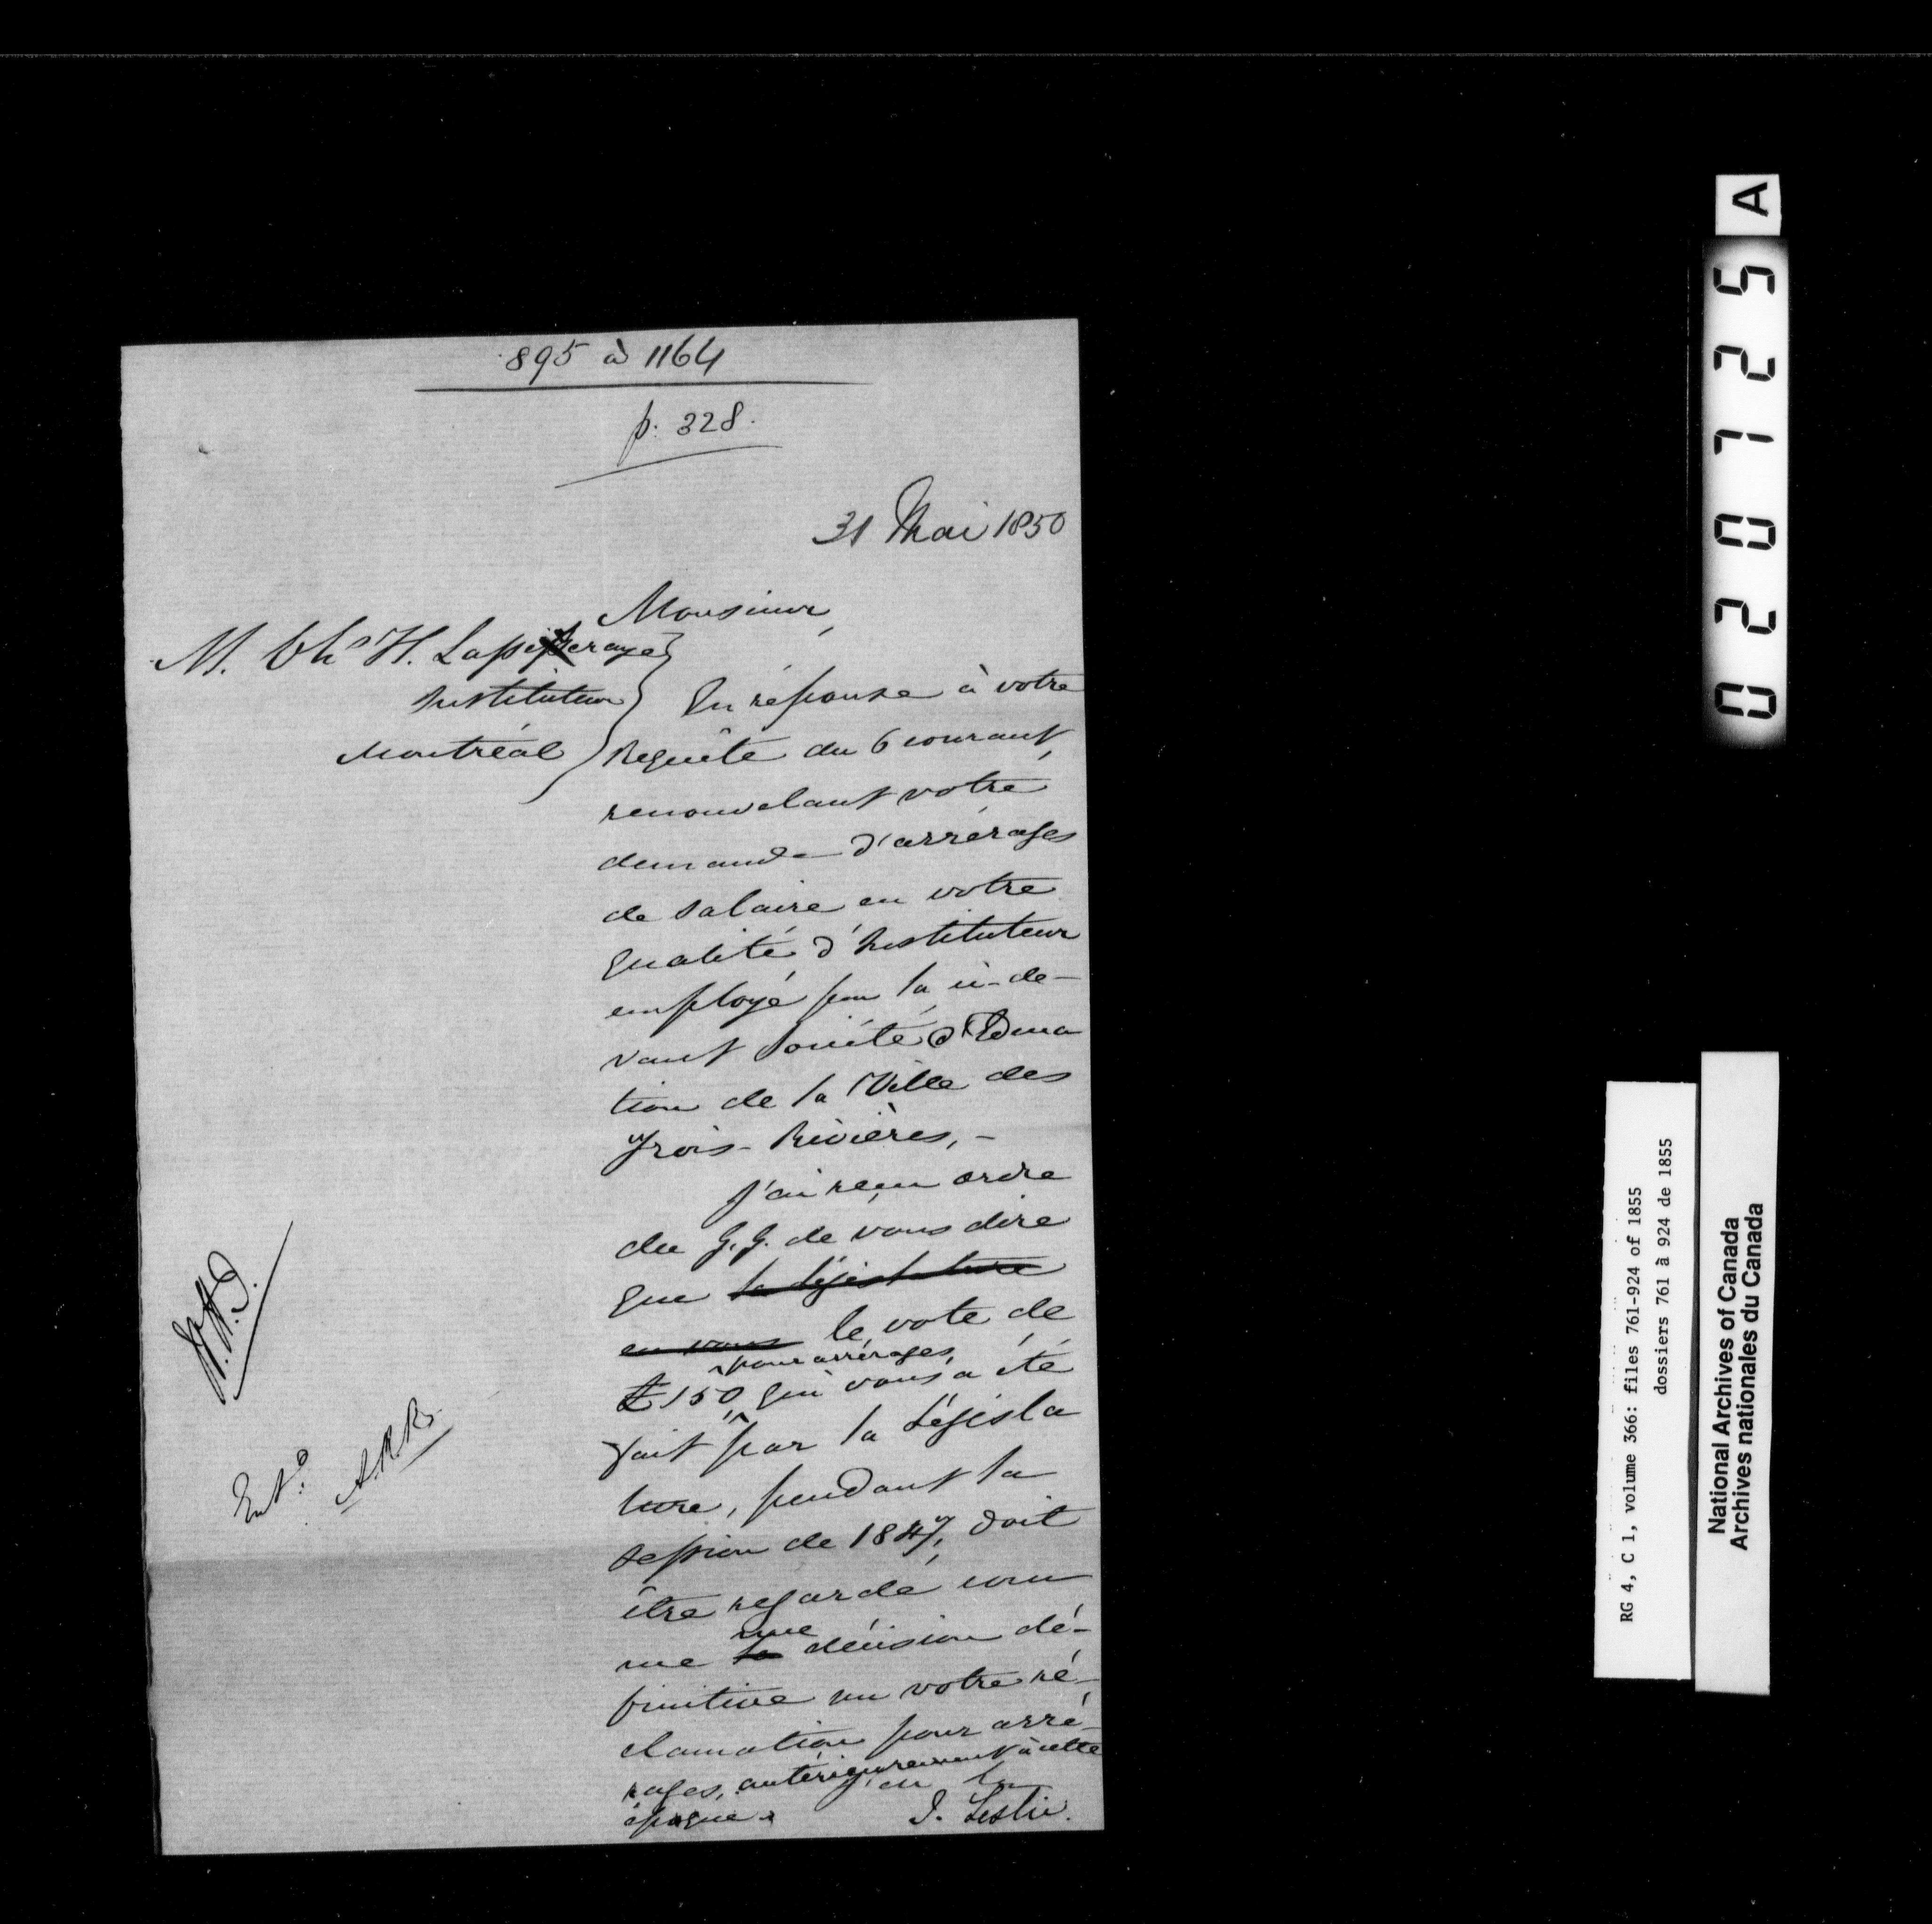 895 à 1164
p. 328.
31 Mai 1850
Monsieur,
M. Chs H. Lapeyteraye
Instituteur
Montréal
En réponse à votre
Requête du 6 courant,
renouvelant votre
demande d'arrérages
de salaire en votre
qualité d'Instituteur
employé par la ci-de-
vant Société d'Educa
tion de la Ville des
Trois-Rivières, -
J'ai reçu ordre
du G. G. de vous dire
que la législature
en vous le vote de
pour arrérages,
£150 qui vous a été
fait par la Législa
ture, pendant la
session de 1847, doit
être regardé com
me la une décision dé-
finitive sur votre ré-
clamation pour arré-
rages, antérieurement à cette
époque.
J'ai
J. Leslie.
Entd.
A.R.R.
020725 A
RG 4, C 1, volume 366: files 761-924 of 1855
dossiers 761 à 924 de 1855
National Archives of Canada
Archives nationales du Canada